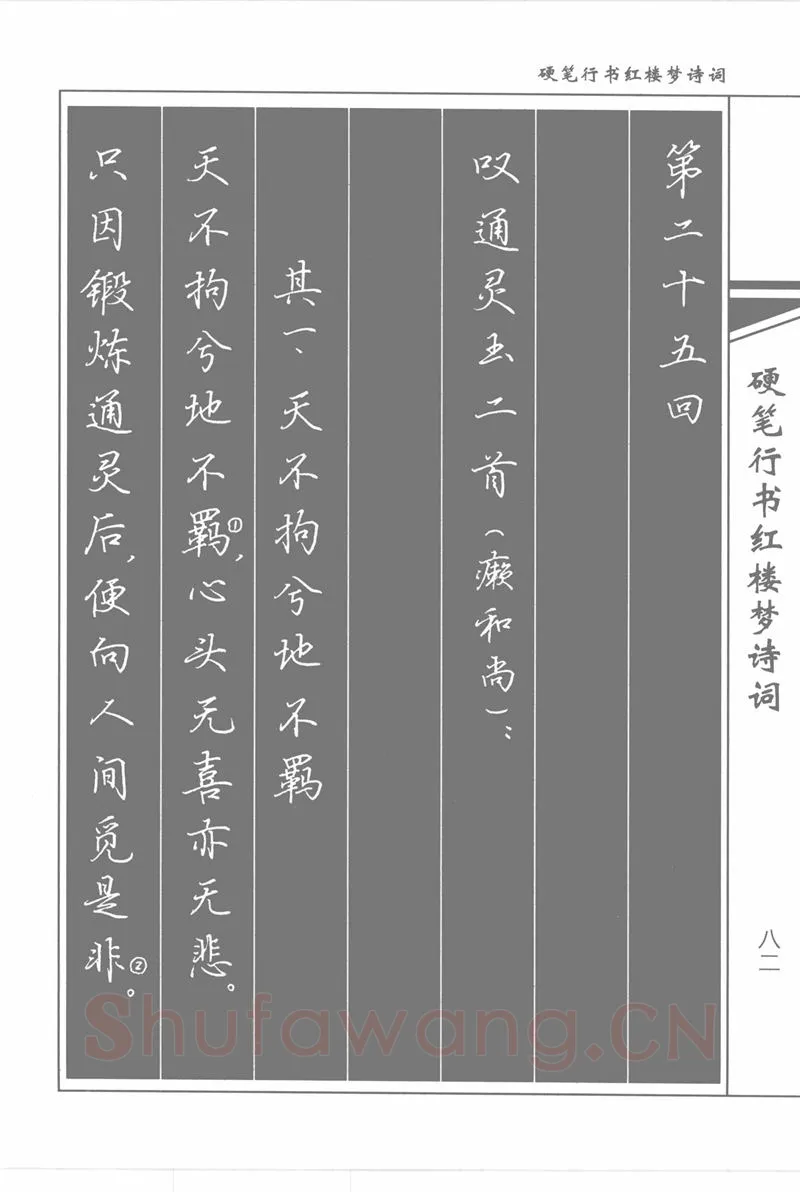 硬笔行书红楼梦诗词
第二十五回
叹通灵玉二首(癞和尚):
其一、天不拘兮地不羁
天不拘兮地不羁①,心头无喜亦无悲。
只因锻炼通灵后,便向人间觅是非②。
硬笔行书红楼梦诗词
八二
Shufawang.CN